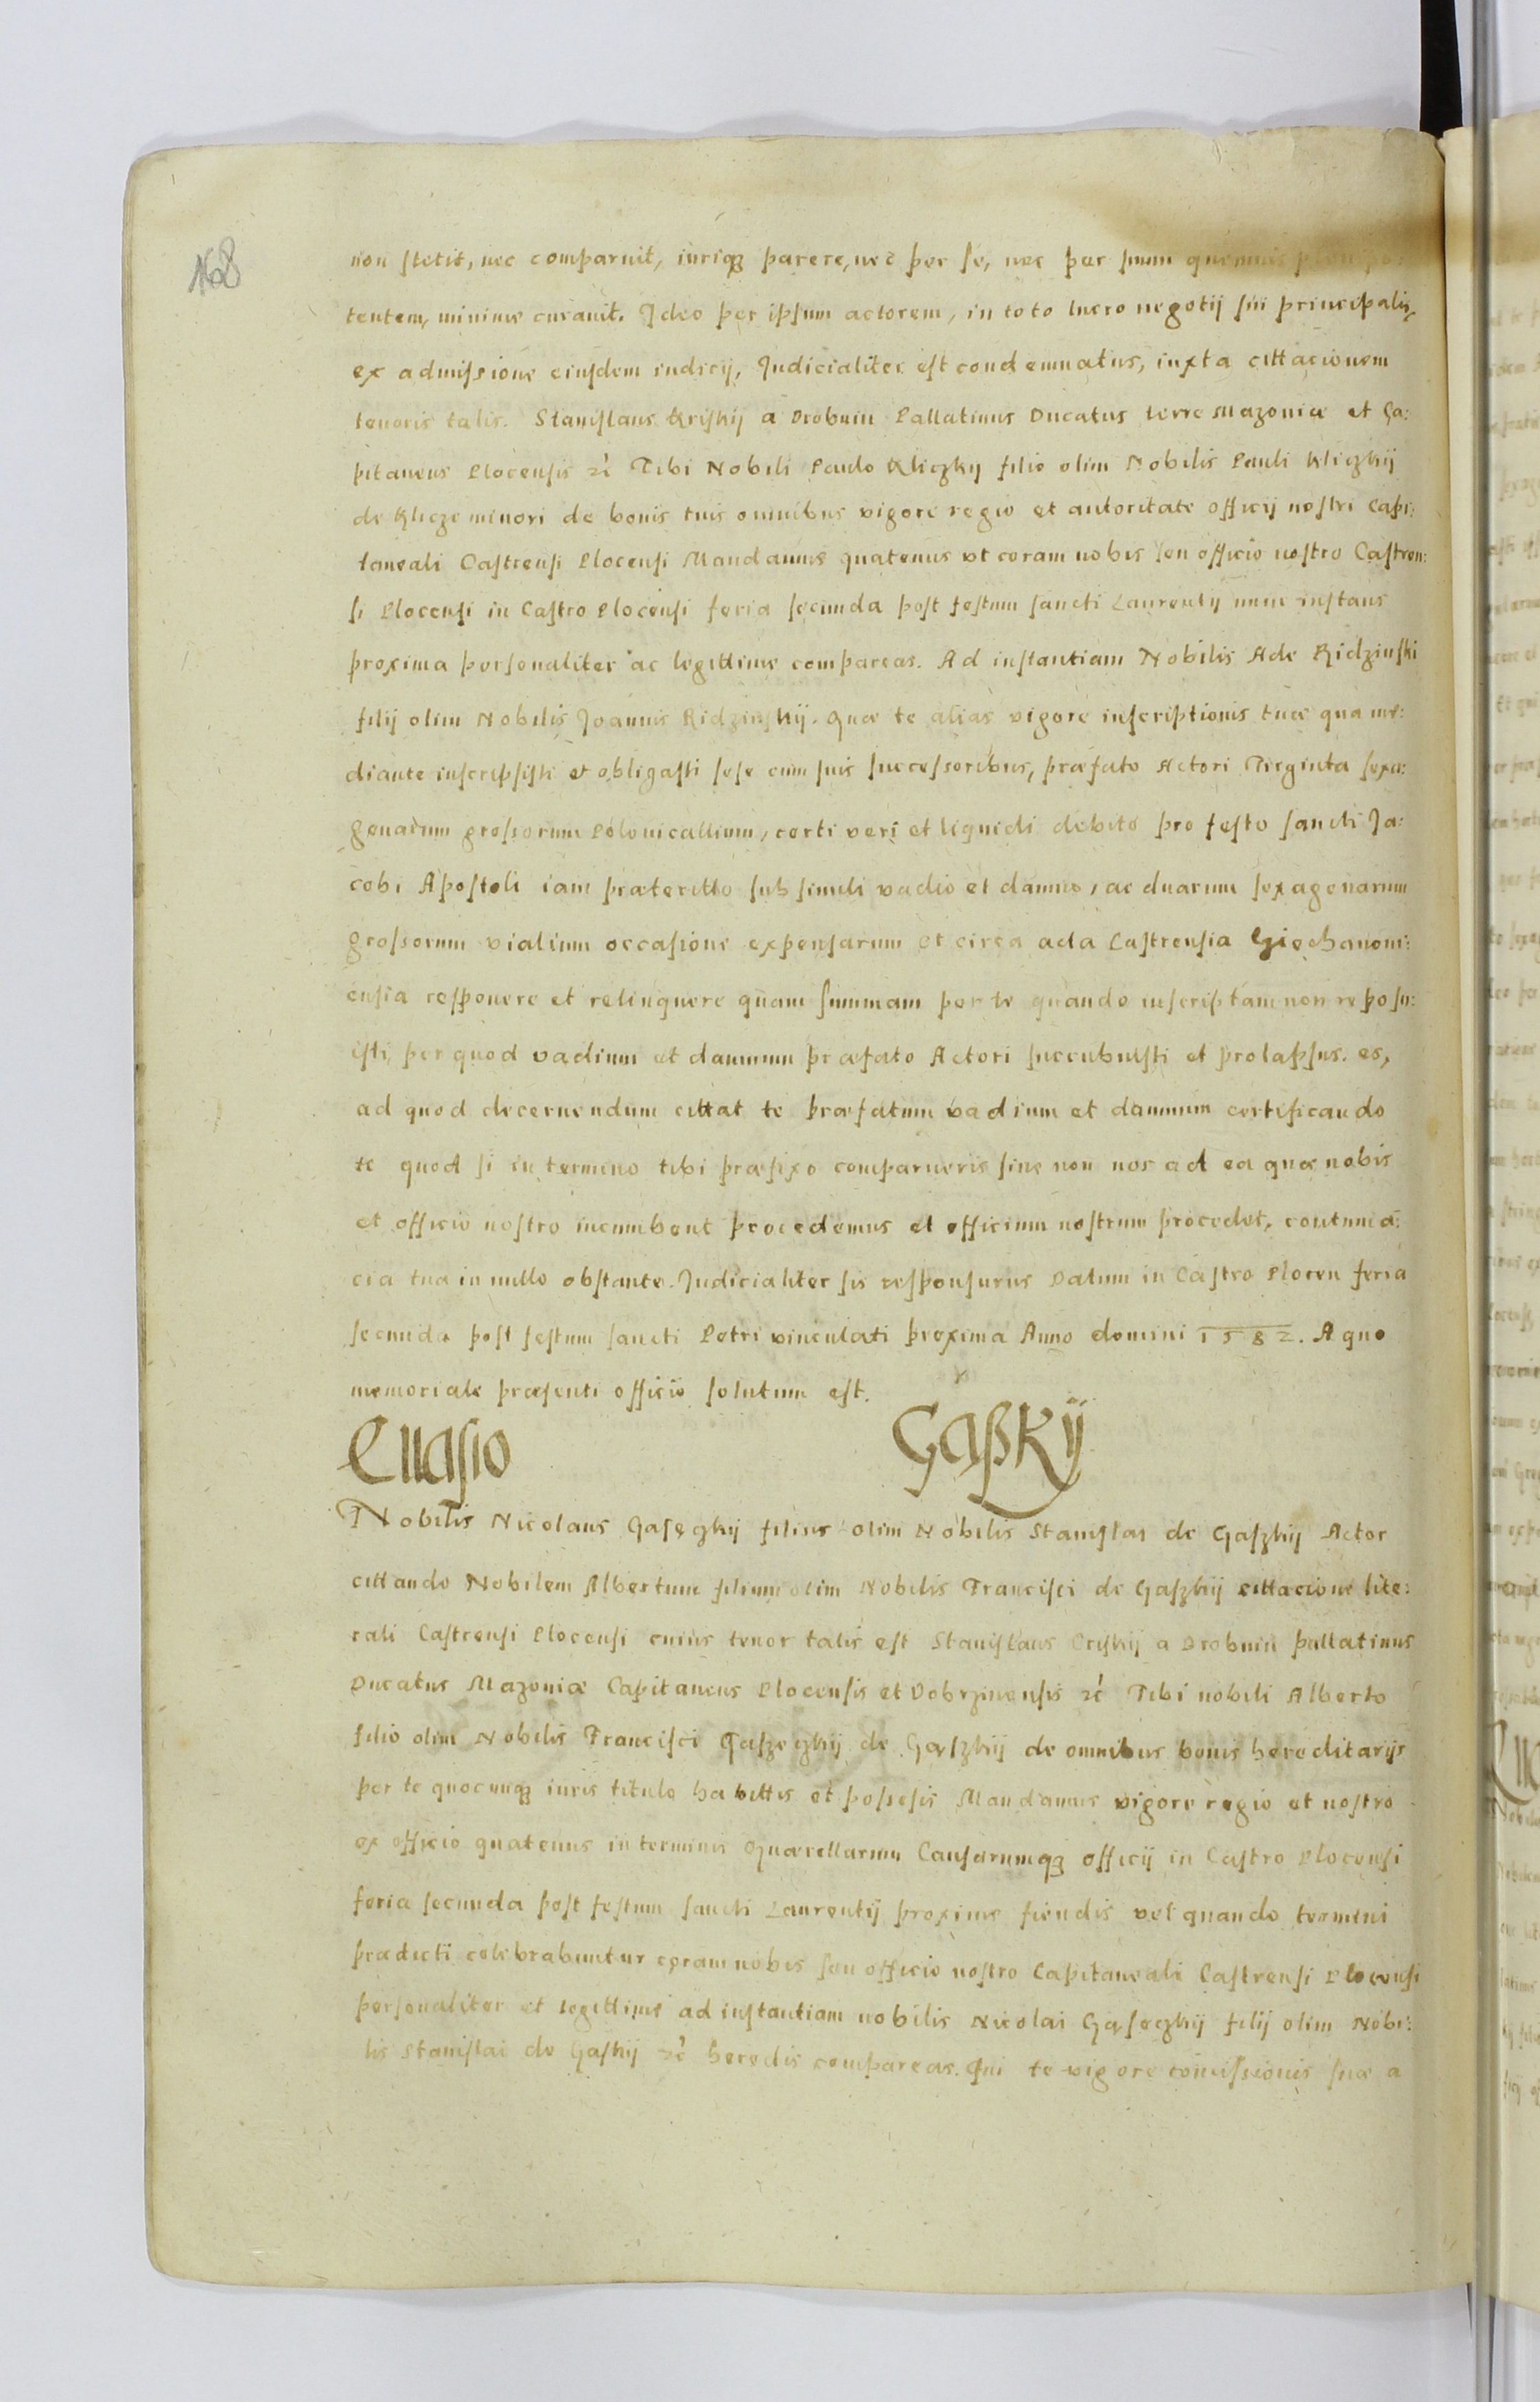 168
non stetit, nec comparuit, iuriq3 parere, nec per se, nec per suum quemuis plenipo:
tentem, minime curauit. Ideo per ipsum actorem, in toto lucro negotij sui principalis,
ex admissione eiusdem iudicij, Judicialiter est condemnatus, iuxta cittacionem
tenoris talis. Stanislaus Kriskij a Drobnin Pallatinus Ducatus terre Mazoniæ et Ca:
pitaneus Plocensis etc Tibi Nobili Paulo Kliczkij filio olim Nobilis Pauli Kliczkij
de Klicze minori de bonis tuis omnibus vigore regio et autoritate officij nostri Capi:
taneali Castrensi Plocensi Mandamus quatenus vt coram nobis seu officio nostro Castren:
si Plocensi in Castro Plocensi feria secunda post festum sancti Laurentij nunc instans
proxima personaliter ac legittime compareas. Ad instantiam Nobilis Ade Ridzinski
filij olim Nobilis Joannis Ridzinskij. Quæ te alias vigore inscriptionis tuæ qua me:
diante inscripsisti et obligasti sese cum suis successoribus, præfato Actori Triginta sexa:
genarum grossorum Polonicallium, certi veri et liquidi debito pro festo sancti Ja:
cobi Apostoli iam præteritto sub simili vadio et damno, ac duarum sexagenarum
grossorum vialium occasione expensarum et circa acta Castrensia Ciechanoni:
ensia resposnere et relinquere quam summam per te quando inscriptam non reposu:
isti, per quod vadium et damnum præfato Actori succubuisti et prolapsus es,
ad quod decernendum cittat te præfatum vadium et damnum certificando
te quod si in termino tibi præfixo comparueris siue non nos ad ea quæ nobis
et officio nostro incumbent procedemus et officium nostrum procedet, contuma:
cia tua in nullo obstante. Judicialiter sis responsurus Datum in Castro Plocen feria
secunda post festum sancti Petri vinculati proxima Anno domini 1582. A quo
memoriale præsenti officio solutum est.
Euasio Gaßkij
Nobilis Nicolaus Gasęczkij filius olim Nobilis Stanislai de Gaszkij Actor
cittando Nobilem Albertum filium olim Nobilis Francisci de Gaszkij cittacione lite:
rali Castrensi Plocensi cuius tenor talis est Stanislaus Criskij a Drobnin pallatinus
Ducatus Mazoniæ Capitaneus Plocensis et Dobrzinensis etc Tibi nobili Alberto
filio olim Nobilis Francisci Gaszeczkij de Gaszkij de omnibus bonis hereditarijs
per te quocunq3 iuris titulo habittis et possesis Mandamus vigore regio et nostro
ex officio quatenus in terminis Quærellarum Causarumq3 officij in Castro Plocensi
feria secunda post festum sancti Laurentij proxime fiendis vel quando termini
prædicti celebrabuntur coram nobis seu officio nostro Capitaneali Castrensi Plocensi
personaliter et legittime ad instantiam nobilis Nicolai Gąseczkij filij olim Nobi:
lis Stanislai de Gaskij etc heredis compareas. Qui te vigore concissionis suæ a